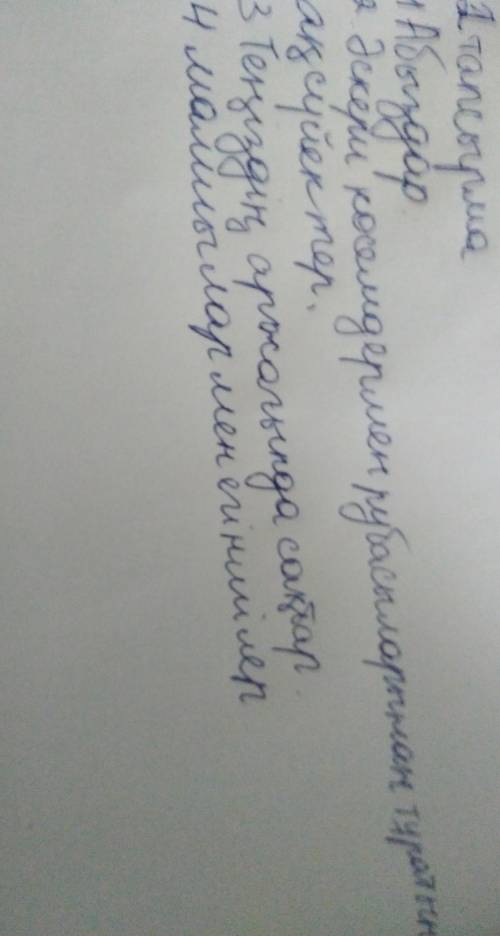 2 тапсырма
1 Абыздар
2. Әскери көсемдермен рубасыларынан тұратын
ақсүйектер.
3 Теңіздің арғжағында сақтар.
4 малшылар мен егіншілер